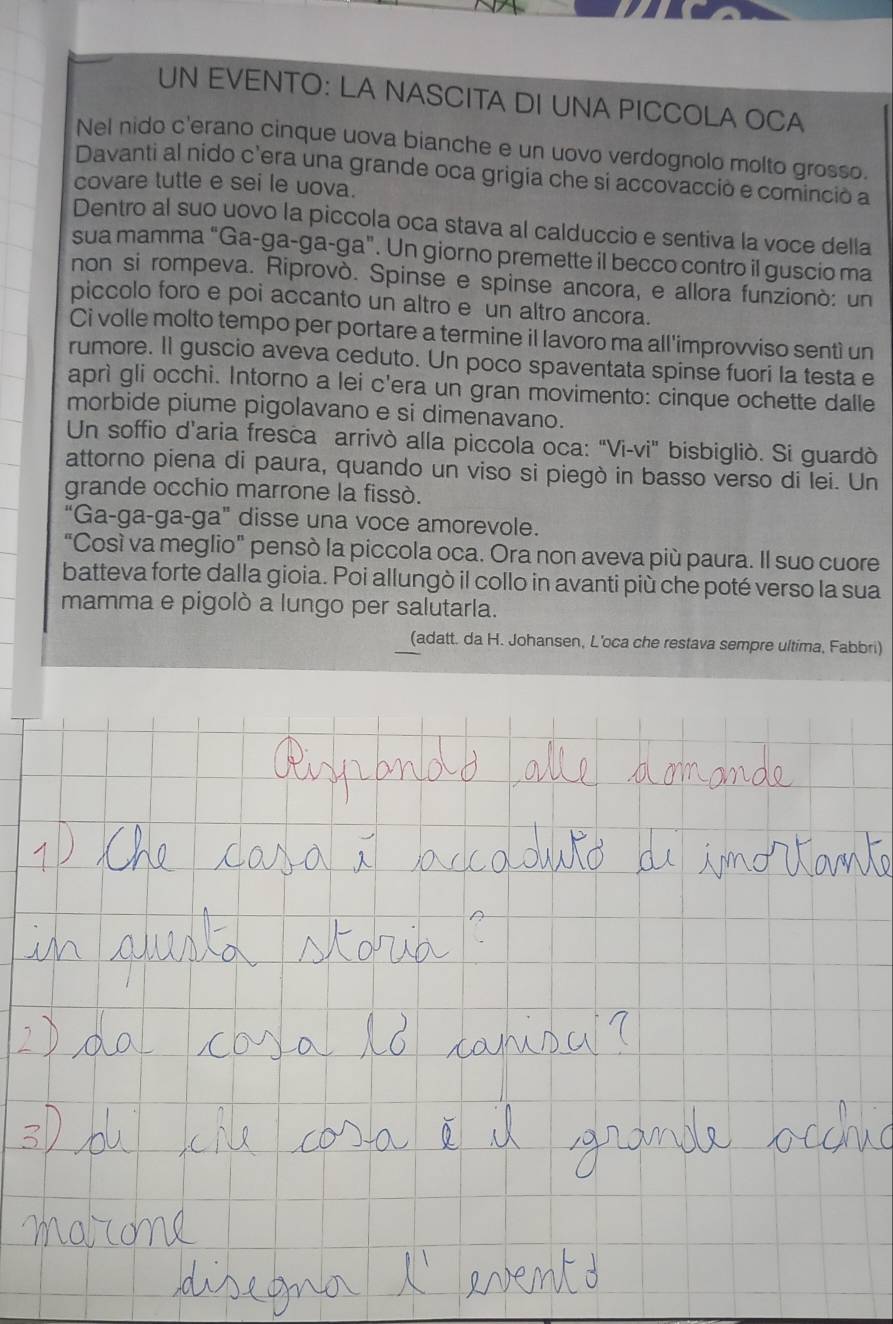 UN EVENTO: LA NASCITA DI UNA PICCOLA OCA
Nel nido c'erano cinque uova bianche e un uovo verdognolo molto grosso.
Davanti al nido c'era una grande oca grigia che si accovacciò e cominciò a
covare tutte e sei le uova.
Dentro al suo uovo la piccola oca stava al calduccio e sentiva la voce della
sua mamma "Ga-ga-ga-ga". Un giorno premette il becco contro il guscio ma
non si rompeva. Riprovò. Spinse e spinse ancora, e allora funzionò: un
piccolo foro e poi accanto un altro e un altro ancora.
Ci volle molto tempo per portare a termine il lavoro ma all'improvviso sentì un
rumore. Il guscio aveva ceduto. Un poco spaventata spinse fuori la testa e
aprì gli occhi. Intorno a lei c'era un gran movimento: cinque ochette dalle
morbide piume pigolavano e si dimenavano.
Un soffio d'aria fresca arrivò alla piccola oca: "Vi-vi" bisbigliò. Si guardò
attorno piena di paura, quando un viso si piegò in basso verso di lei. Un
grande occhio marrone la fissò.
"Ga-ga-ga-ga" disse una voce amorevole.
"Così va meglio" pensò la piccola oca. Ora non aveva più paura. Il suo cuore
batteva forte dalla gioia. Poi allungò il collo in avanti più che poté verso la sua
mamma e pigolò a lungo per salutarla.
(adatt. da H. Johansen, L'oca che restava sempre ultima, Fabbri)
Rispondo alle domande
1) Che cosa è accaduto di imortante
in questa storia?
2) da cosa lo capisci?
3) di che cosa è il grande occhio
marone
disegna l'evento